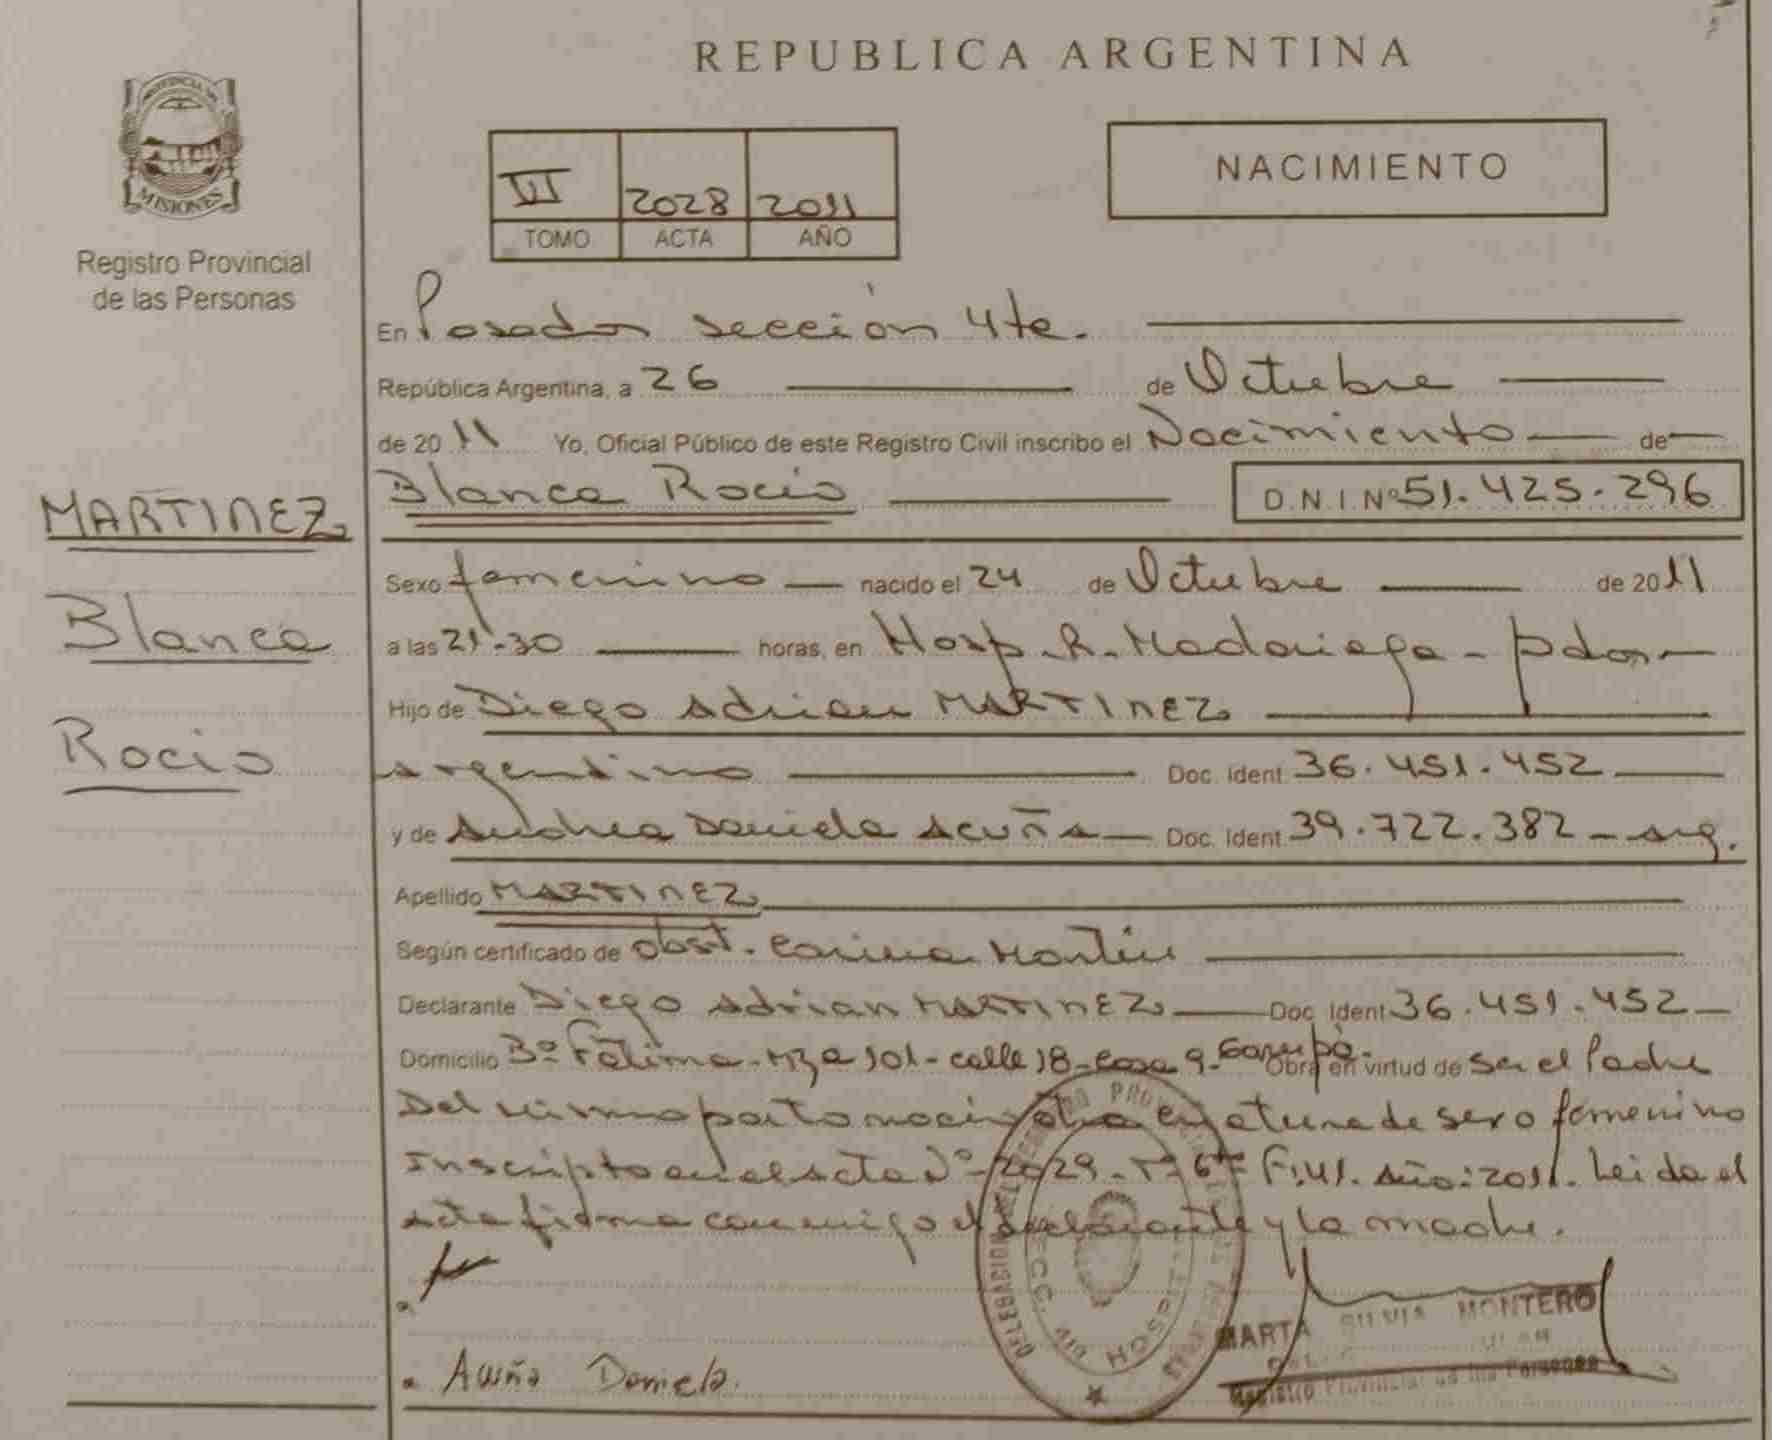 REPUBLICA ARGENTINA
MISIONES
Registro Provincial
de las Personas
VI 2028 2011
TOMO ACTA AÑO
NACIMIENTO
En Posadas sección 4ta.
República Argentina, a 26 de Octubre
de 2011 Yo, Oficial Público de este Registro Civil inscribo el Nacimiento de
MARTINEZ
Blanca
Rocio
Blanca Rocio D.N.I.Nº 51.425.296
Sexo femenino nacido el 24 de Octubre de 2011
a las 21.30 horas, en Hosp. R. Madariaga - Pdas
Hijo de Diego Adrian MARTINEZ
argentino Doc. Ident 36.451.452
y de Andrea Daniela Acuña Doc. Ident 39.722.382 - arg.
Apellido MARTINEZ
Según certificado de obst. Carina Martin
Declarante Diego Adrian MARTINEZ Doc. Ident 36.451.452
Domicilio Bº Fátima - Mza 101 - calle 18 - casa 9 - Garupá. Obra en virtud de ser el Padre
Del mismo parto nació otra criatura de sexo femenino
Inscripto en el acta Nº 2029 - Tº 6º Fº 41. Año: 2011. Leida el
acta firma conmigo el declarante y la madre.
Acuña Daniela.
DELEGACION
HOSPITAL
MARTA SILVIA MONTERO
Registro Provincial de las Personas